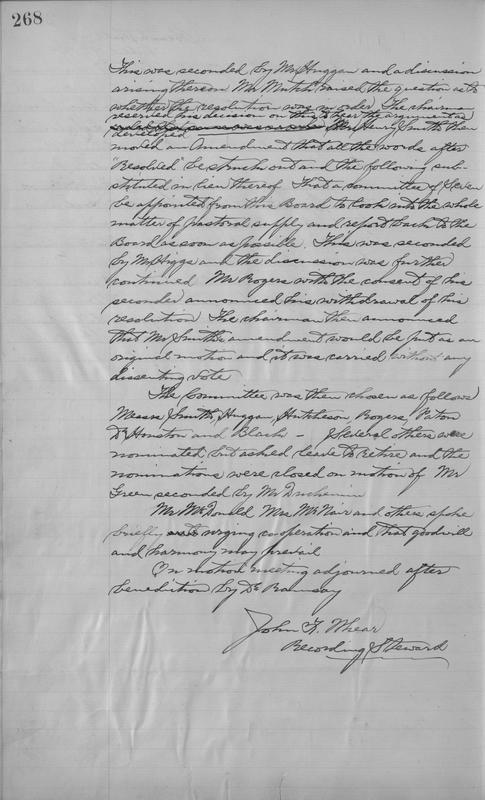 268
This was seconded by Mr Huggan and a discussion
arising thereon Mr Mutch raised the question as to
whether the resolution was in order. The chairman
reserved his decision on this to hear the argument as
developed Mr Henry Smith then
moved an Amendment that all the words after
"Resolved" be struck out and the following sub-
stituted in lieu thereof. That a committee of Seven
be appointed from this Board to look into the whole
matter of pastoral supply and report back to the
Board as soon as possible. This was seconded
by Mr Higgs and the discussion was further
continued Mr Rogers with the consent of his
seconder announced his withdrawal of his
resolution The chairman then announced
that Mr Smith's amendment would be put as an
original motion and it was carried without any
dissenting vote
The Committee was then chosen as follows
Messrs Smith, Huggan, Hutcheson, Rogers, Paton
Dr Houston and Black - Several others were
nominated but asked leave to retire and the
nominations were closed on motion of Mr
Green seconded by Mr Duchemin
Mr McDonald Mrs McNair and others spoke
briefly urging co-operation and that goodwill
and harmony may prevail
On motion meeting adjourned after
benediction by Dr Ramsay
John F. Whear
Recording Steward